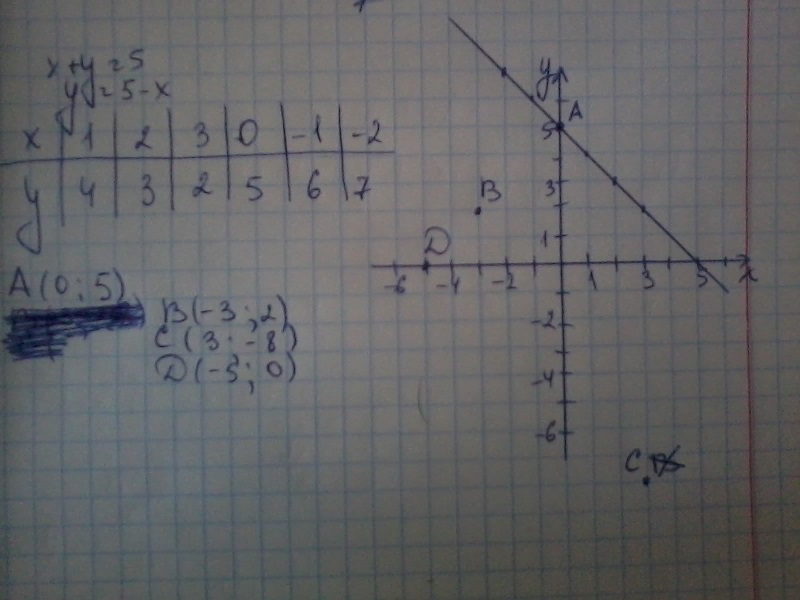 x+y=5
y=5-x
x | 1 | 2 | 3 | 0 | -1 | -2
y | 4 | 3 | 2 | 5 | 6 | 7
A(0; 5)
B(-3; 2)
C(3; -8)
D(-5; 0)
y
A
5
B
3
D
1
-6 -4 -2 1 3 5 x
-2
-4
-6
C